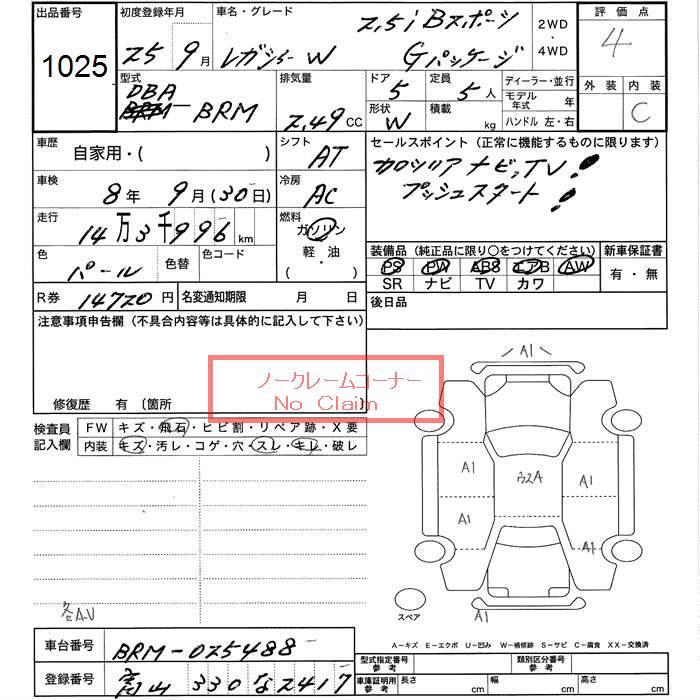 出品番号 初度登録年月 車名・グレード 2WD 評価点
1025 25 9月 レガシィー W 2,5i Bスポーツ ・ 4
Gパッケージ 4WD
型式 排気量 ドア 定員 ディーラー・並行 外装 内装
DBA 5 5人 モデル年式 年 C
BRM 2,49CC 形状 W 積載 kg ハンドル 左・右
車歴 自家用・( ) シフト AT セールスポイント (正常に機能するものに限ります)
カロッツリア ナビ,TV!
車検 8年 9月(30日) 冷房 AC プッシュスタート!
走行 14万3千996km 燃料 ガソリン
軽・油
( ・ )
色 パール 色替 色コード 装備品 (純正品に限り〇をつけてください) 新車保証書
PS PW ABS エアB AW 有・無
SR ナビ TV カワ
R券 14720円 名変通知期限 月 日 後日品
注意事項申告欄 (不具合内容等は具体的に記入して下さい)
ノークレームコーナー
No Claim
修復歴 有 〔箇所 〕
検査員記入欄 FW キズ・飛石・ヒビ割・リペア跡・X要
内装 キズ・汚レ・コゲ・穴・スレ・キレ・破レ
A1
A1 A1
A1 A1
各AV
スペア A1
A-キズ E-エクボ U-凹み W-補修跡 S-サビ C-腐食 XX-交換済
車台番号 BRM-025488
型式指定番号 参考 類別区分番号 参考
登録番号 330 2417
車庫証明用 参考 長さ cm 幅 cm 高さ cm